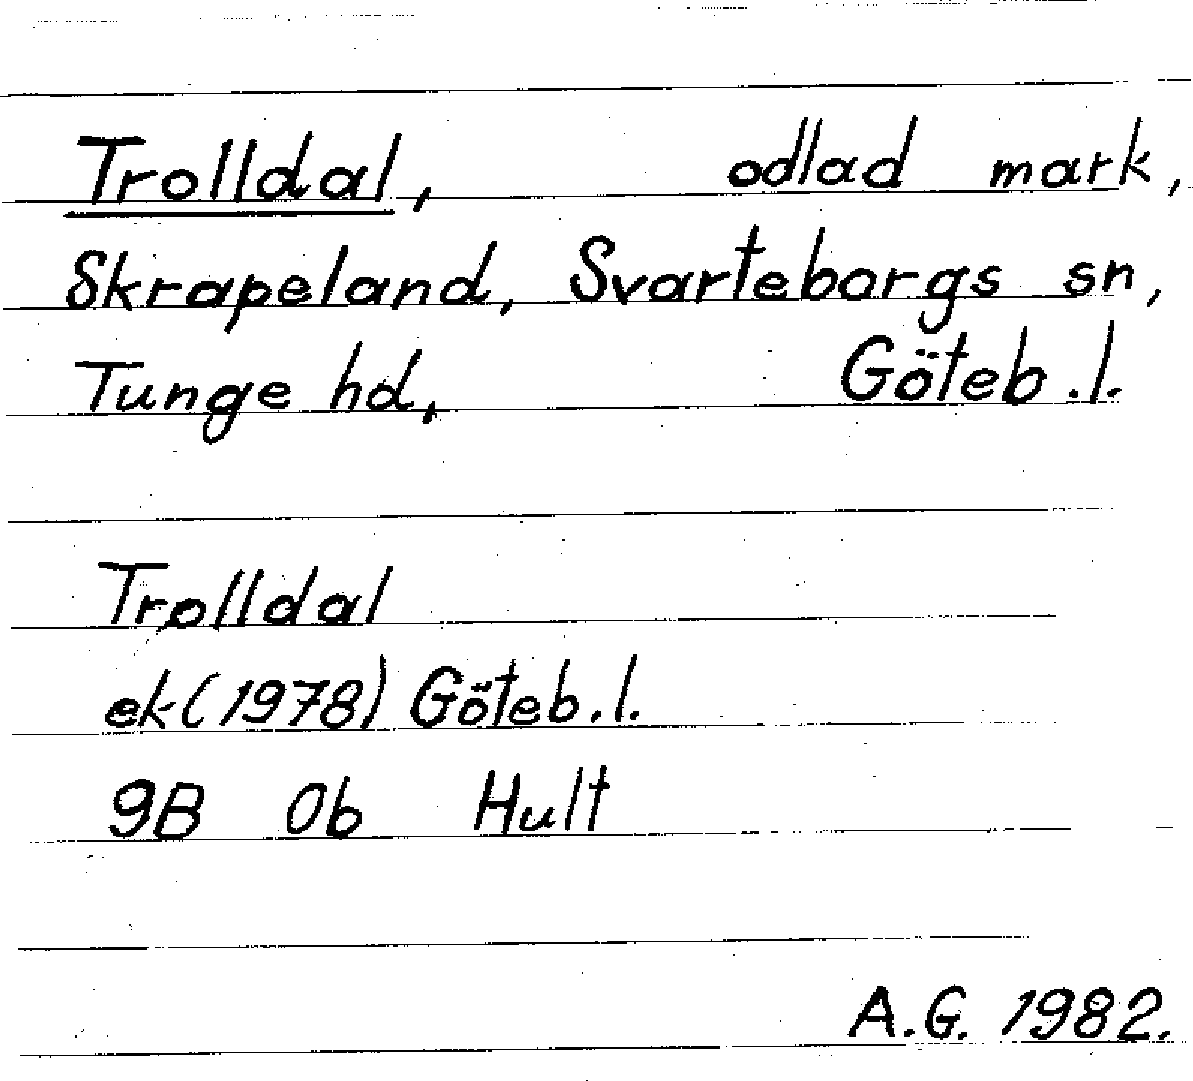 Trolldal, odlad mark,
Skrapeland, Svarteborgs sn,
Tunge hd, Göteb.l.
Trolldal
ek (1978) Göteb.l.
9B 0b Hult
A.G. 1982.